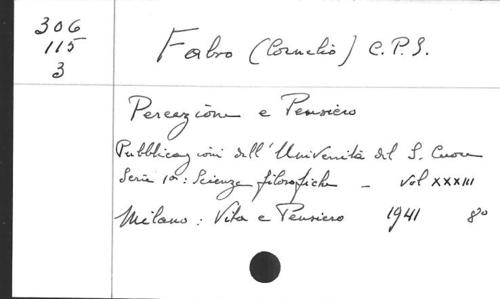 306
115
3
Fabro (Cornelio) C.P.S.
Percezione e Pensiero
Pubblicazioni dell'Università del S. Cuore
Serie 1a: Scienze filosofiche - Vol XXXIII
Milano: Vita e Pensiero 1941 8°